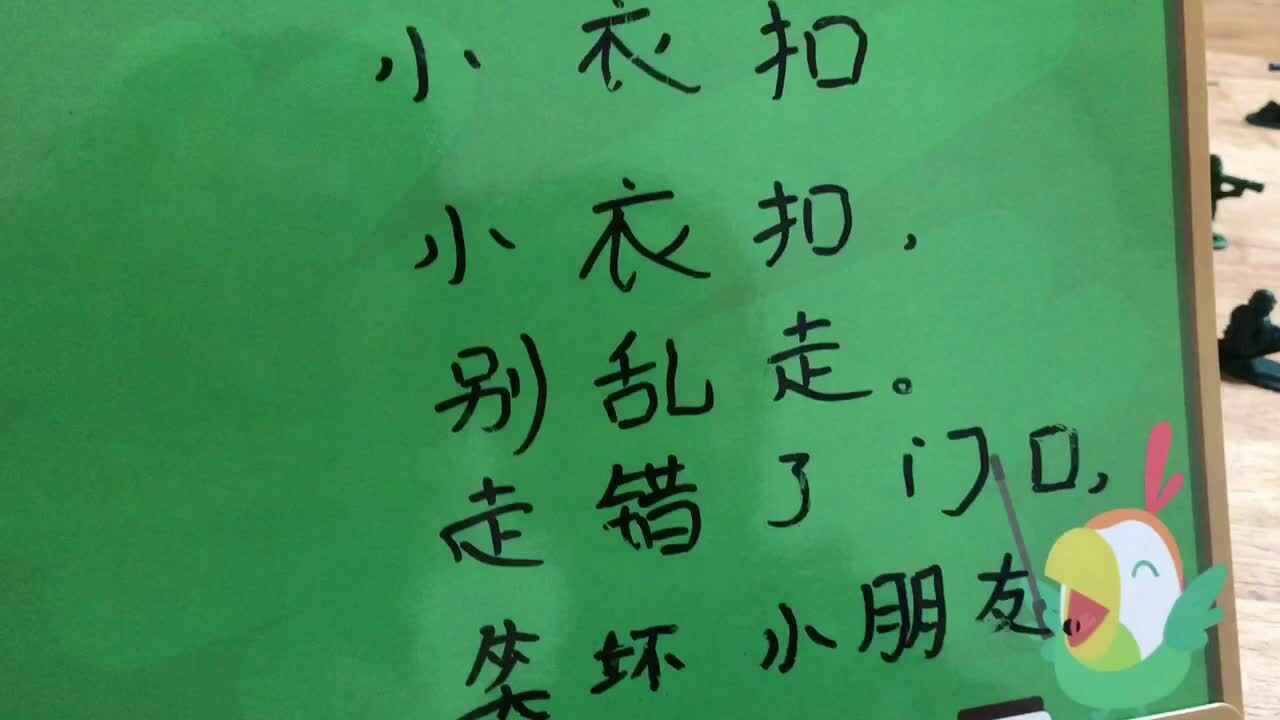 小衣扣
小衣扣，
别乱走。
走错了门口，
笑坏小朋友。